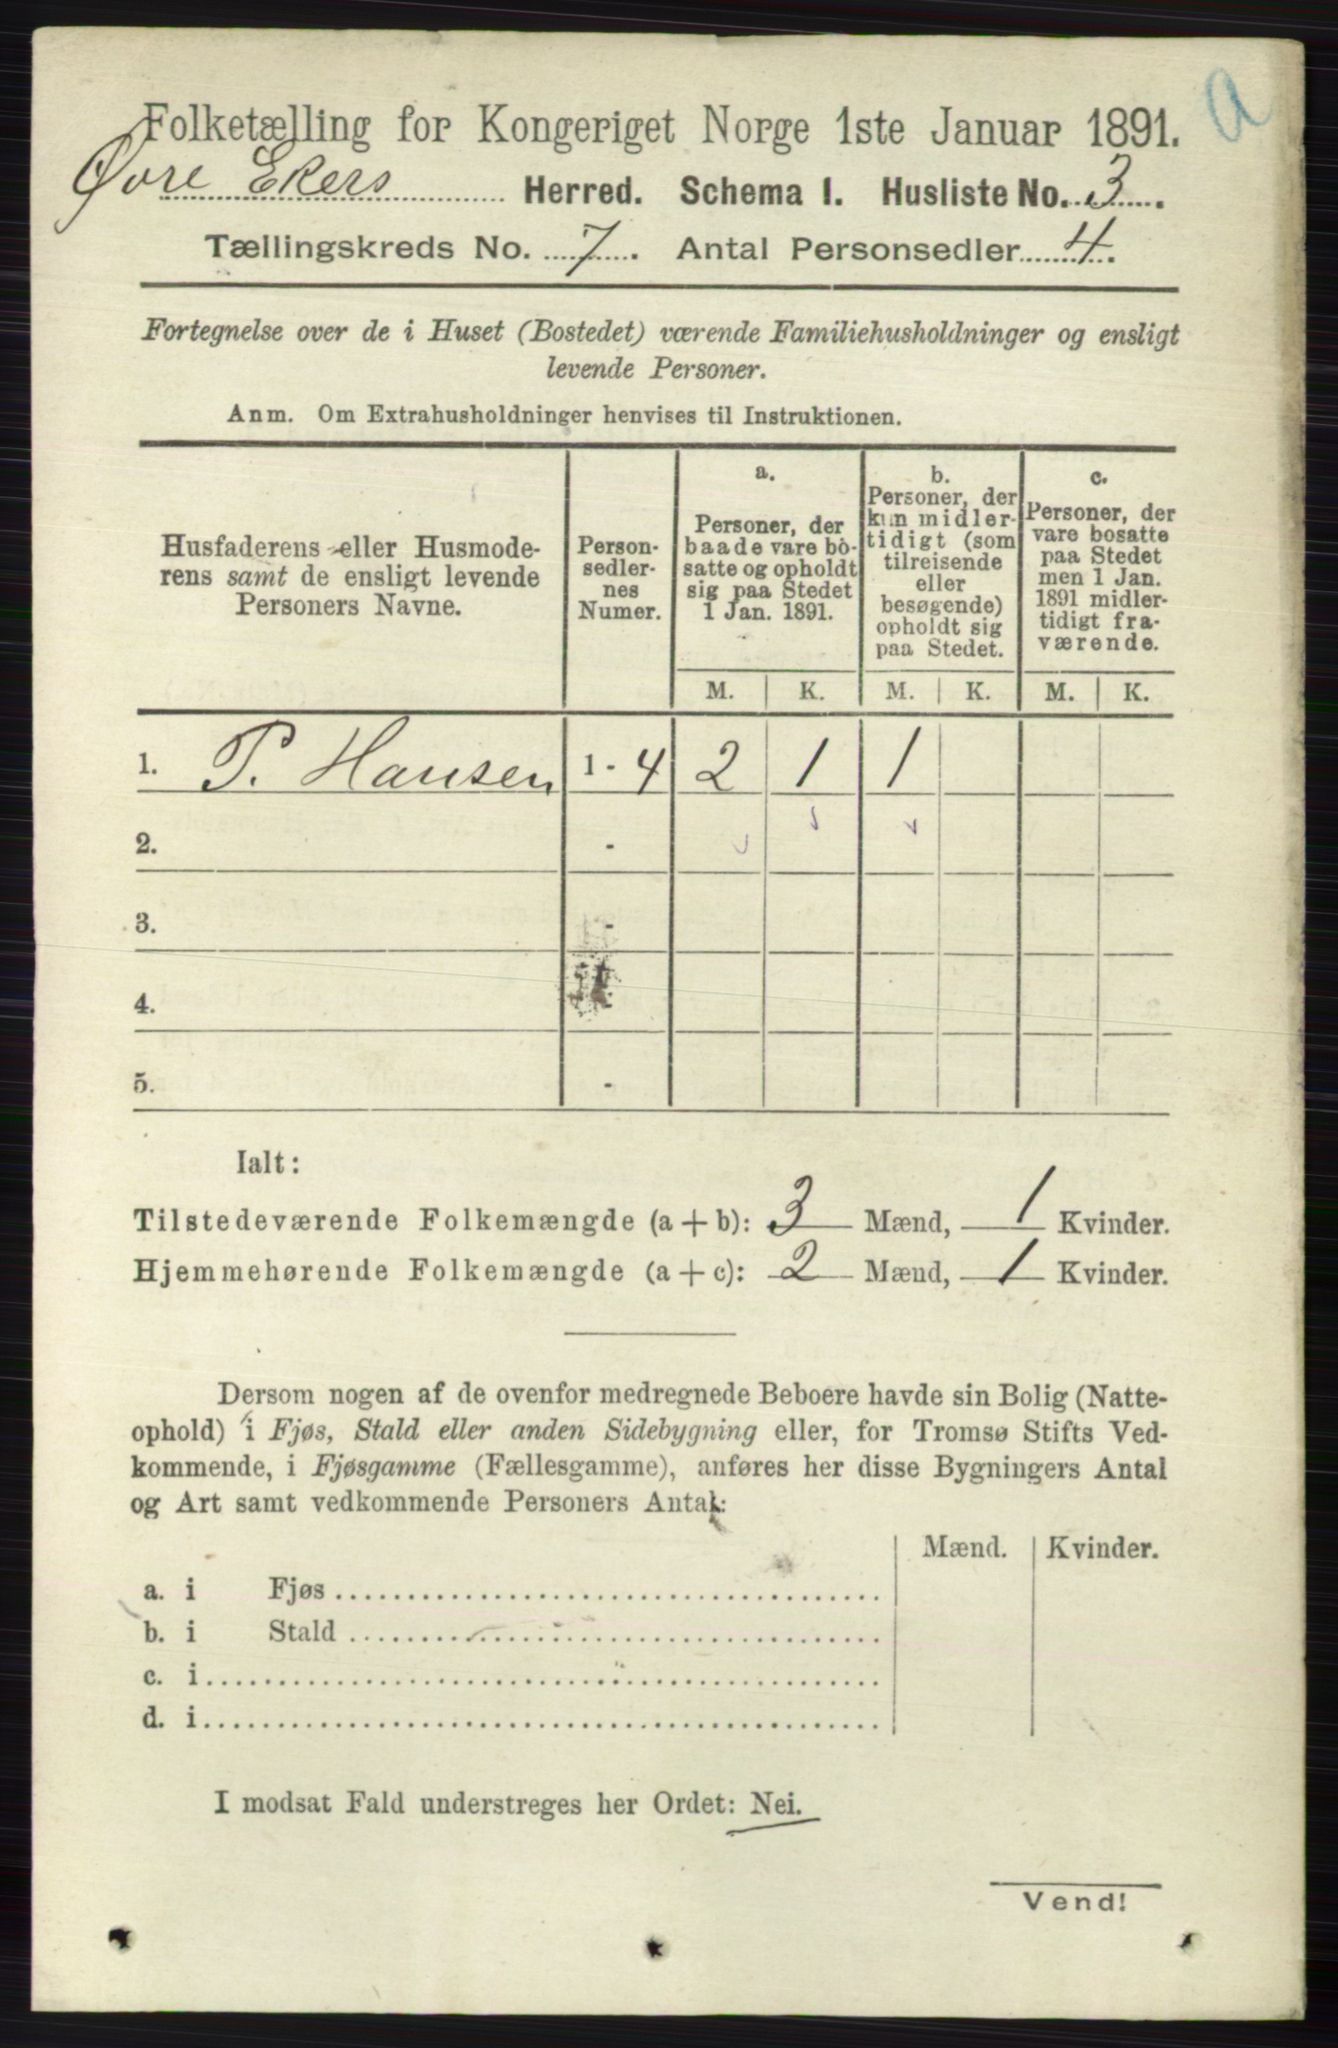 a
Folketælling for Kongeriget Norge 1ste Januar 1891.
Øvre Ekers Herred. Schema 1. Husliste No. 3.
Tællingskreds No. 7. Antal Personsedler 4.
Fortegnelse over de i Huset (Bostedet) værende Familiehusholdninger og ensligt
levende Personer.
Anm. Om Extrahusholdninger henvises til Instruktionen.
Husfaderens eller Husmode-
rens samt de ensligt levende
Personers Navne.
Person-
sedler-
nes
Numer.
a.
Personer, der
baade vare bo-
satte og opholdt
sig paa Stedet
1 Jan. 1891.
b.
Personer, der
kun midler-
tidigt (som
tilreisende
eller
besøgende)
opholdt sig
paa Stedet.
c.
Personer, der
vare bosatte
paa Stedet
men 1 Jan.
1891 midler-
tidigt fra-
værende.
M. K. M. K. M. K.
1. P. Hansen 1 - 4 2 1 1
2. -
3. -
4. -
5. -
Ialt:
Tilstedeværende Folkemængde (a + b): 3 Mænd, 1 Kvinder.
Hjemmehørende Folkemængde (a + c): 2 Mænd, 1 Kvinder.
Dersom nogen af de ovenfor medregnede Beboere havde sin Bolig (Natte-
ophold) i Fjøs, Stald eller anden Sidebygning eller, for Tromsø Stifts Ved-
kommende, i Fjøsgamme (Fællesgamme), anføres her disse Bygningers Antal
og Art samt vedkommende Personers Antal:
Mænd. Kvinder.
a. i Fjøs
b. i Stald
c. i
d. i
I modsat Fald understreges her Ordet: Nei.
Vend!